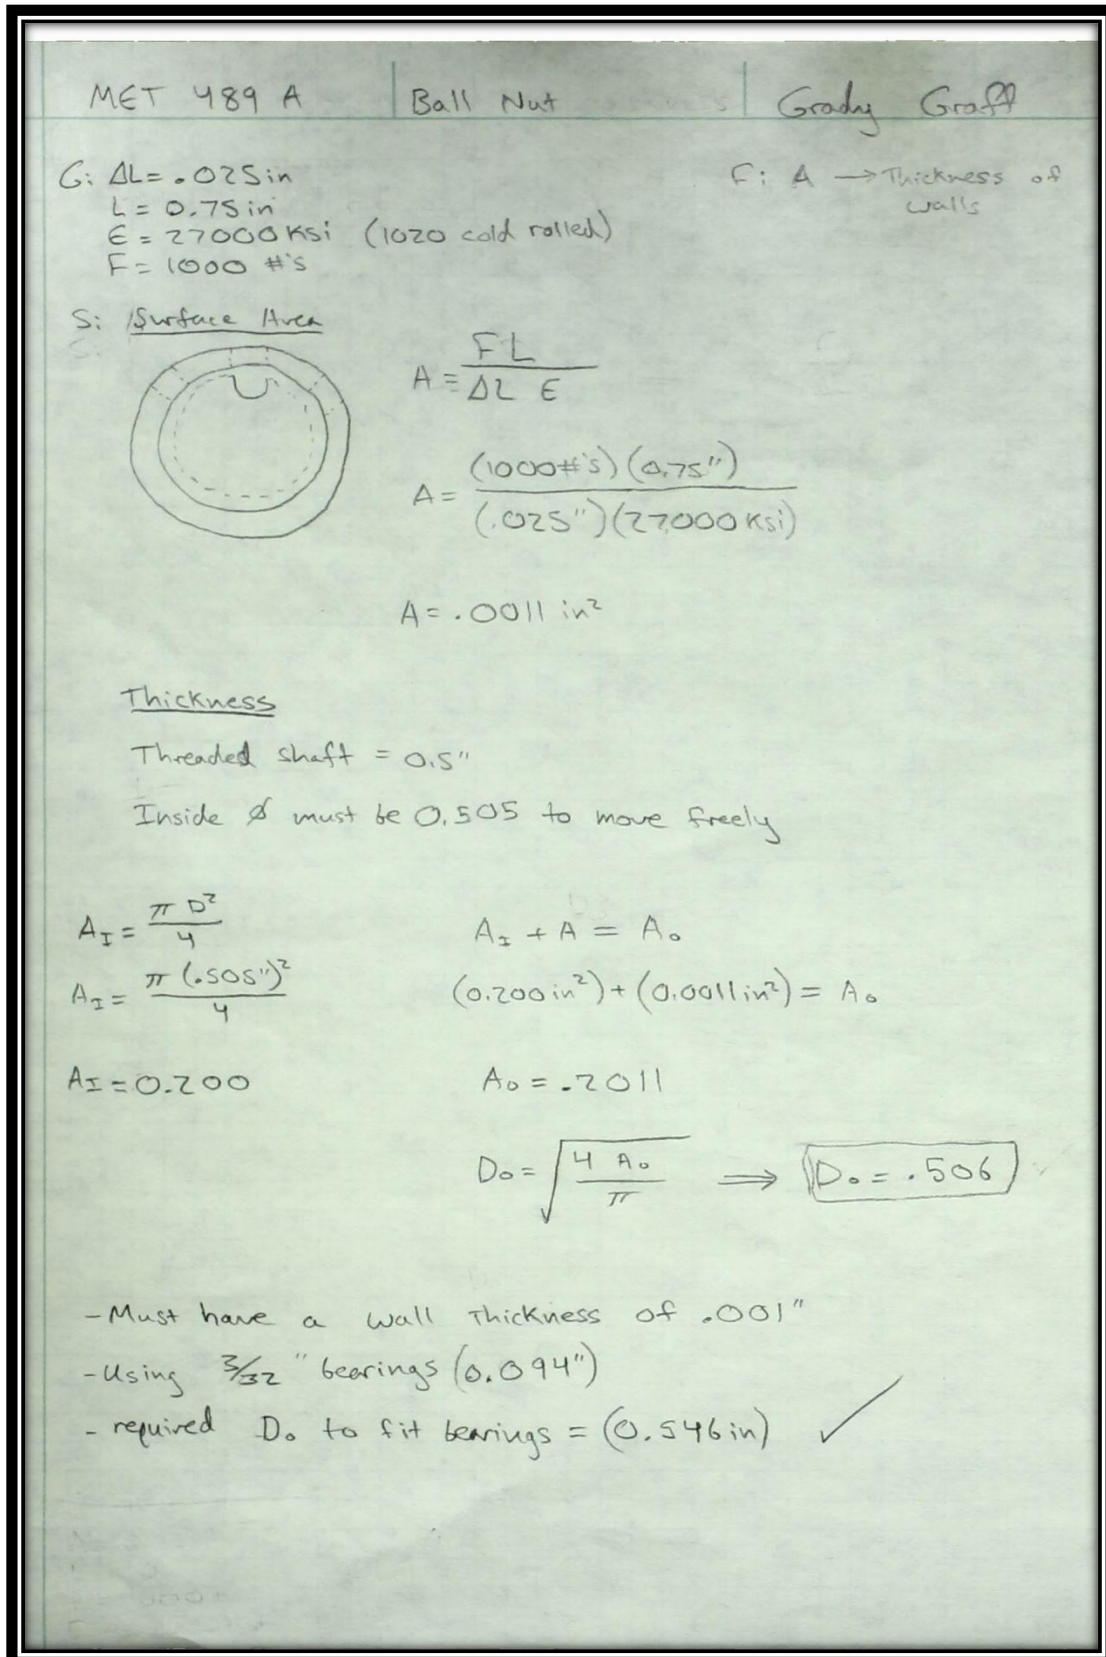 MET 489 A Ball Nut Grady Graft
G: ΔL= .025in F: A → Thickness of
walls
L = 0.75 in
E = 27000 Ksi (1020 cold rolled)
F = 1000 #'s
S: Surface Area
A = FL / ΔL E
A = (1000#'s)(0.75") / (.025")(27000 Ksi)
A = .0011 in²
Thickness
Threaded shaft = 0.5"
Inside ⌀ must be 0.505 to move freely
A_I = π D² / 4 A_I + A = A_o
A_I = π (.505")² / 4 (0.200 in²) + (0.0011 in²) = A_o
A_I = 0.200 A_o = .2011
D_o = √(4 A_o / π) ⟹ D_o = .506
- Must have a wall Thickness of .001"
- Using 3/32" bearings (0.094")
- required D_o to fit bearings = (0.546 in) ✓